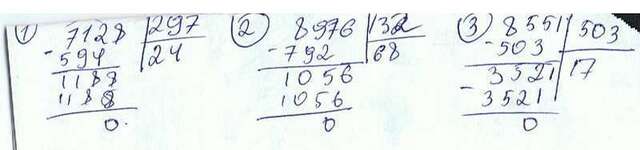 ① 7128 | 297
- 594 | 24
1188
1188
0.
② 8976 | 132
- 792 | 68
1056
1056
0
③ 8551 | 503
- 503 | 17
3521
- 3521
0